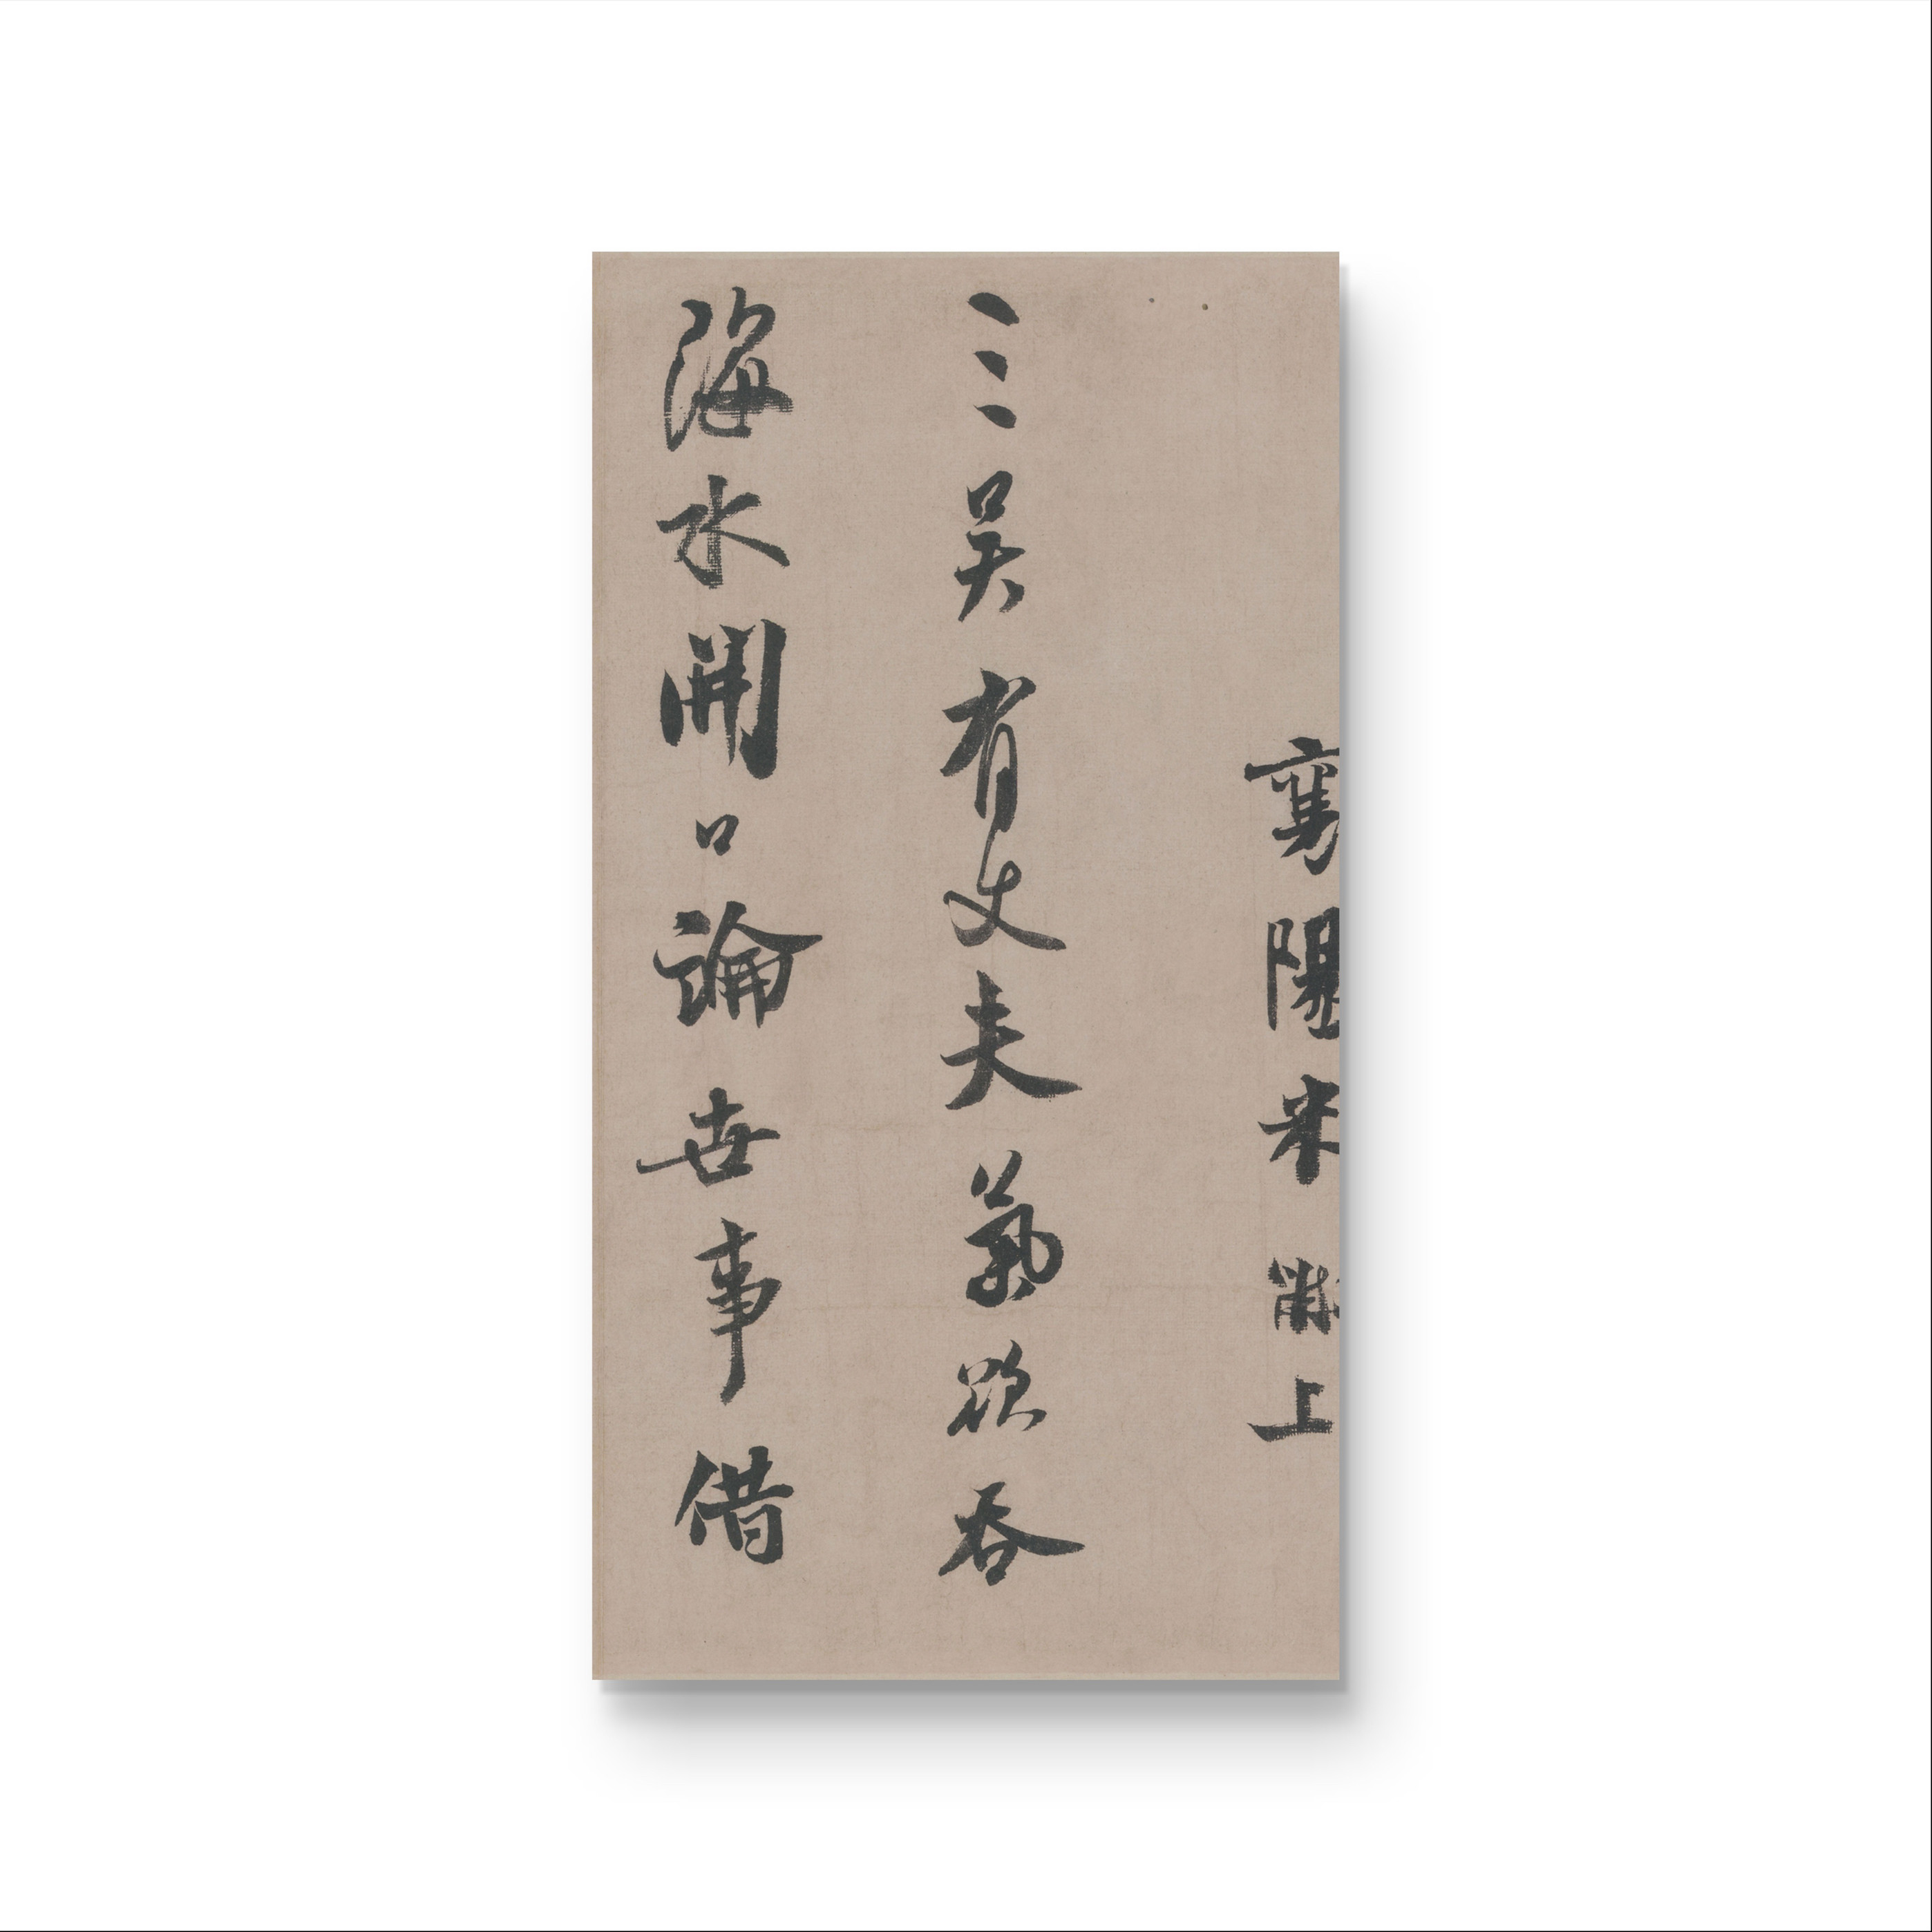 襄陽米黻上
三吳有丈夫氣欲吞
海水開口論世事借